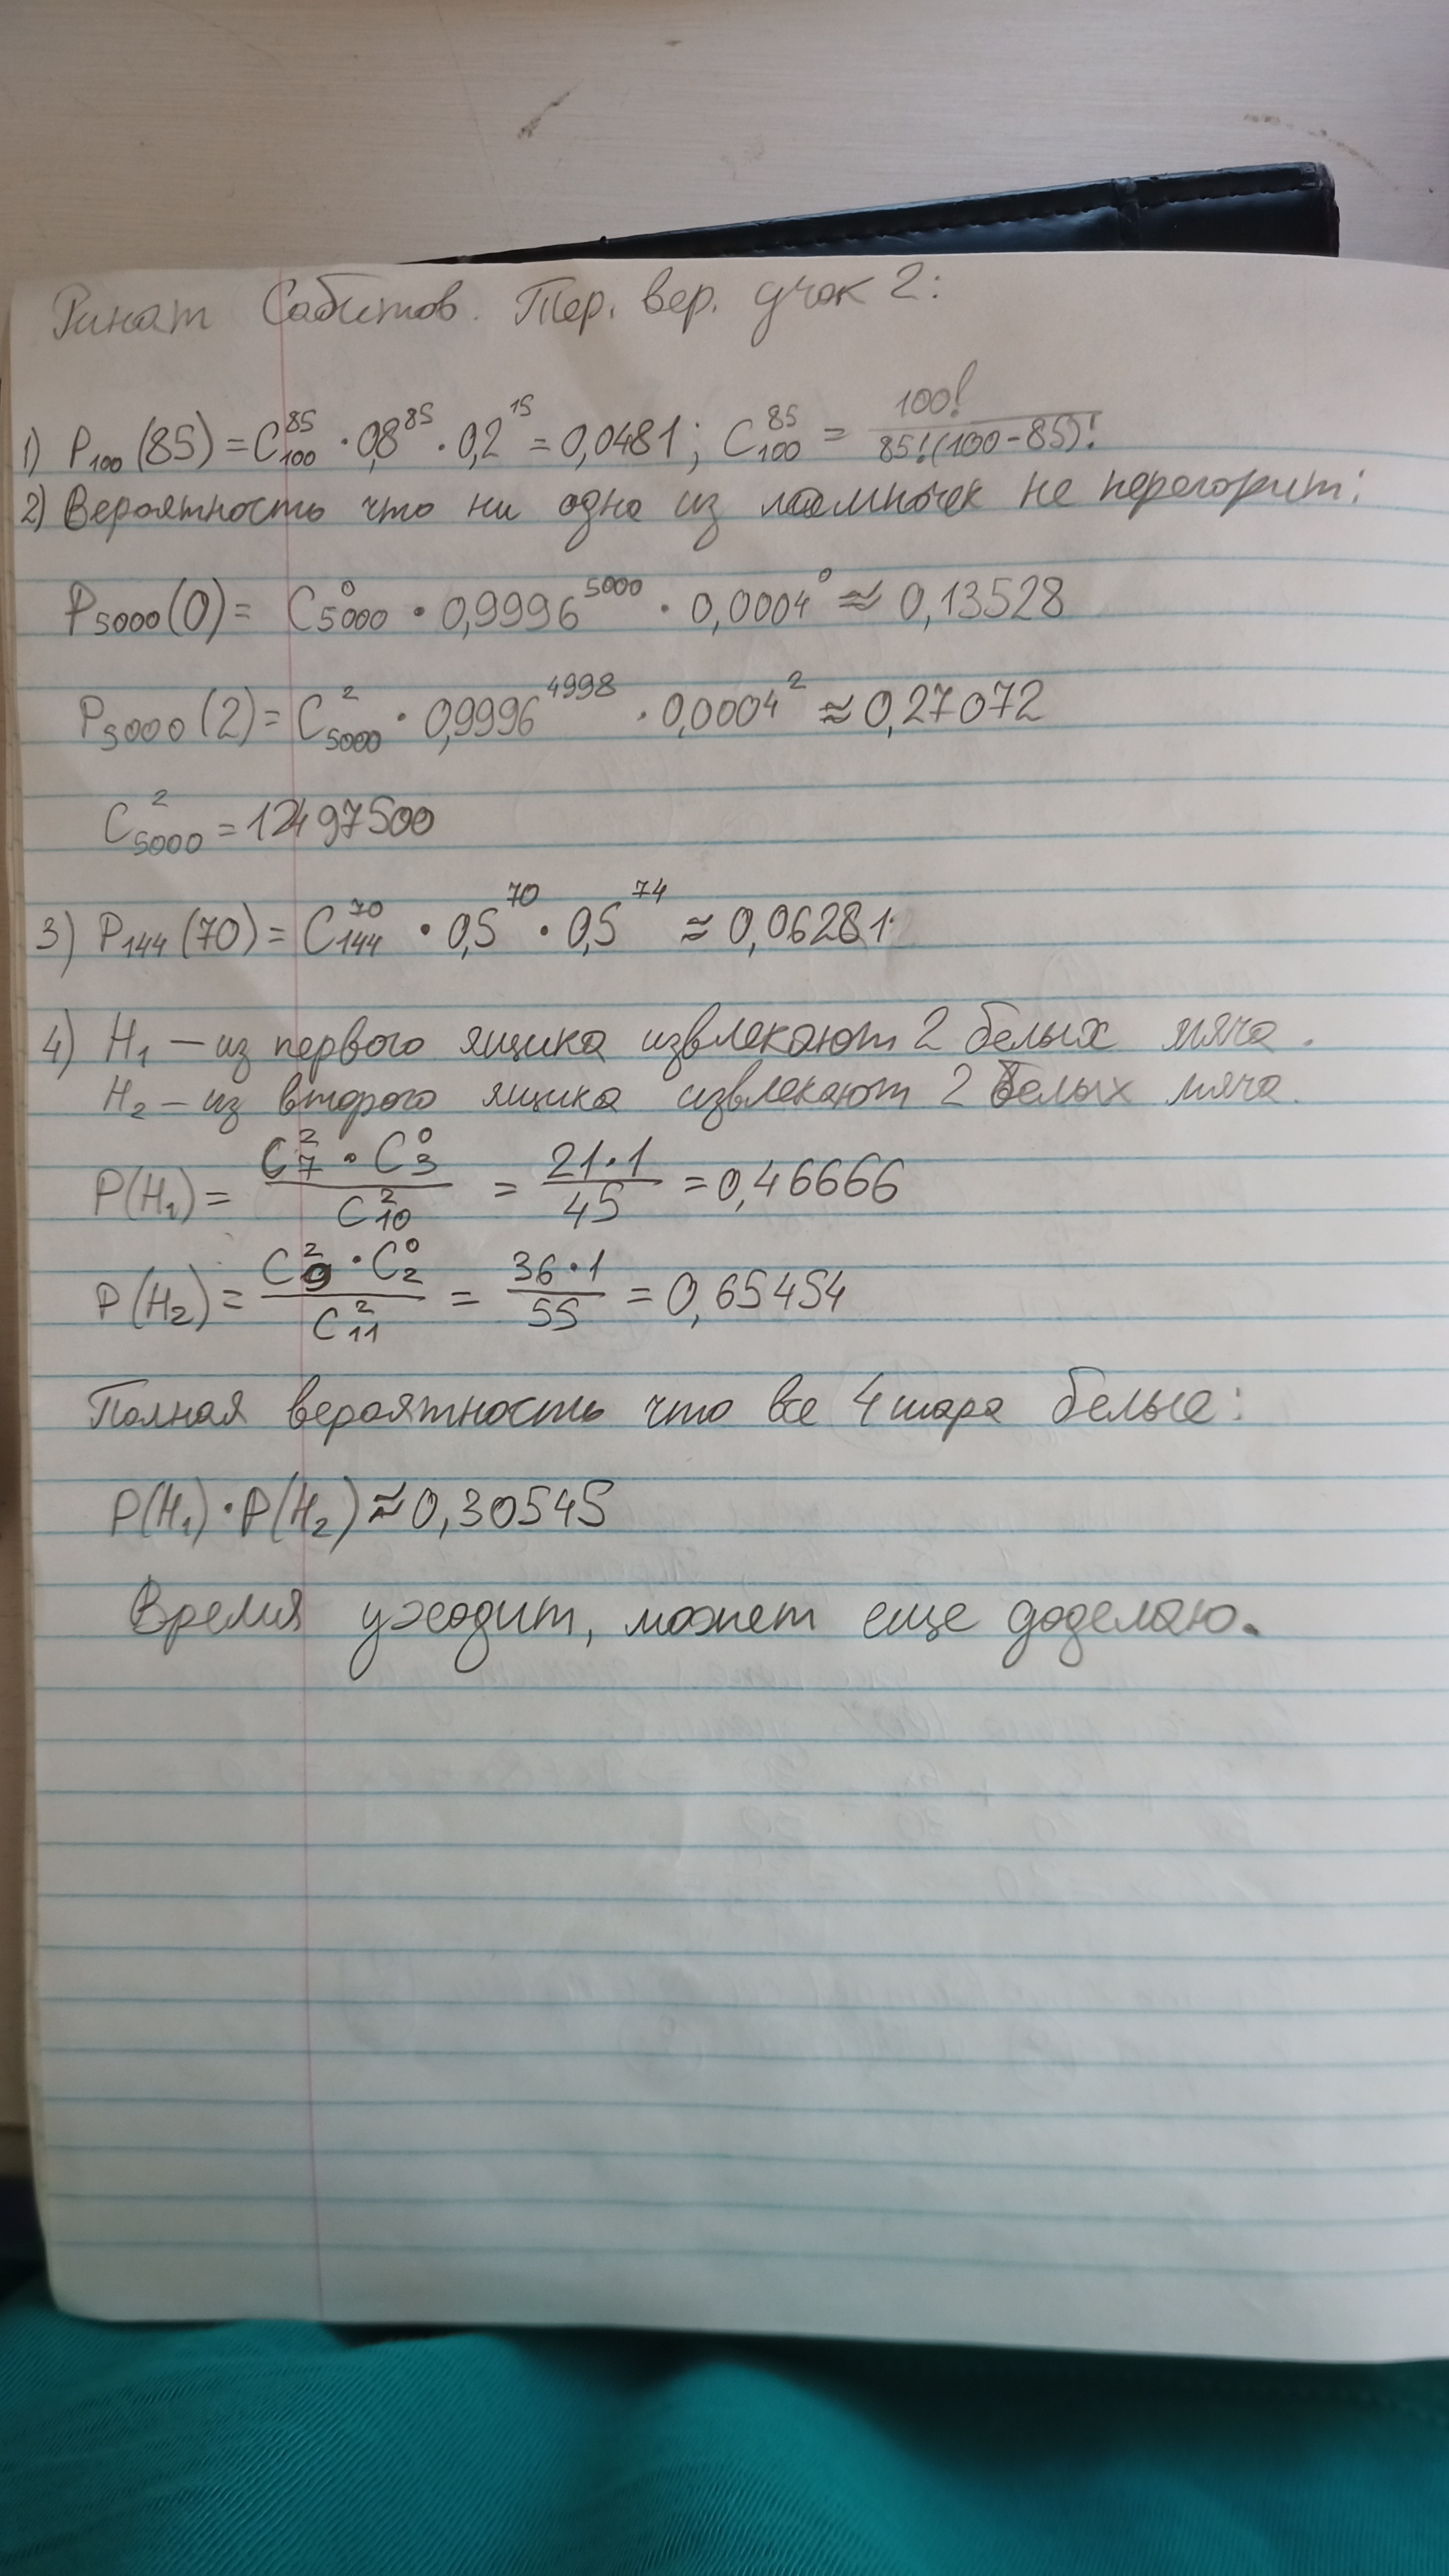 Ринат Сабитов. Тер. вер. урок 2:
1) P₁₀₀(85) = C₁₀₀⁸⁵ · 0,8⁸⁵ · 0,2¹⁵ = 0,0481; C₁₀₀⁸⁵ = 100! / 85!(100-85)!
2) Вероятность что ни одна из лампочек не перегорит:
P₅₀₀₀(0) = C₅₀₀₀⁰ · 0,9996⁵⁰⁰⁰ · 0,0004⁰ ≈ 0,13528
P₅₀₀₀(2) = C₅₀₀₀² · 0,9996⁴⁹⁹⁸ · 0,0004² ≈ 0,27072
C₅₀₀₀² = 12497500
3) P₁₄₄(70) = C₁₄₄⁷⁰ · 0,5⁷⁰ · 0,5⁷⁴ ≈ 0,06281
4) H₁ – из первого ящика извлекают 2 белых мяча.
H₂ – из второго ящика извлекают 2 белых мяча.
P(H₁) = C₇² · C₃⁰ / C₁₀² = 21·1 / 45 = 0,46666
P(H₂) = C₉² · C₂⁰ / C₁₁² = 36·1 / 55 = 0,65454
Полная вероятность что все 4 шара белые:
P(H₁) · P(H₂) ≈ 0,30545
Время уходит, может еще доделаю.